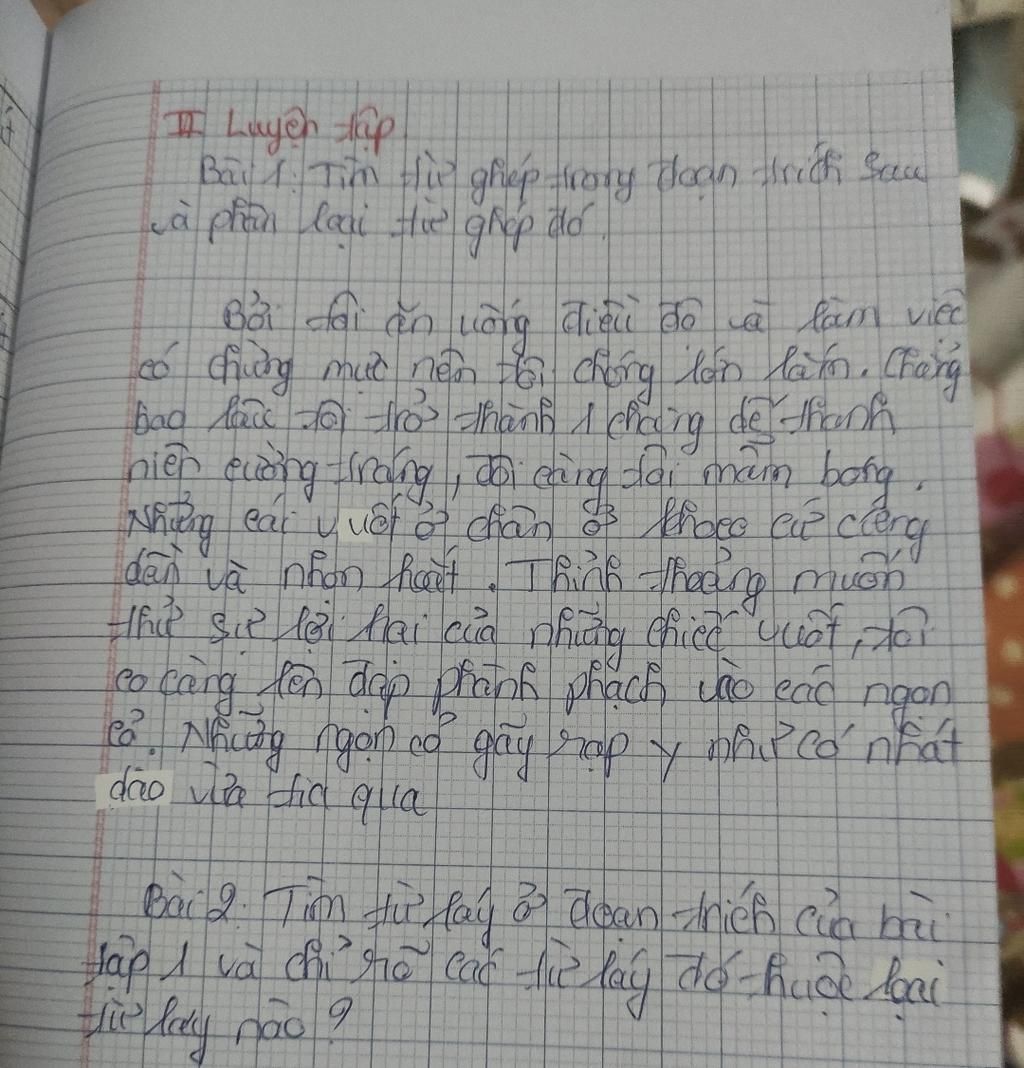 II Luyện tập
Bài 1: Tìm từ ghép trong đoạn trích sau
và phân loại từ ghép đó.
Bởi tôi ăn uống điều độ và làm việc
có chừng mực nên tôi chóng lớn lắm. Chẳng
bao lâu tôi trở thành 1 chàng dế thanh
niên cường tráng, đôi càng tôi mẫm bóng.
Những cái vuốt ở chân ở khoeo cứ cứng
dần và nhọn hoắt. Thỉnh thoảng muốn
thử sự lợi hại của những chiếc vuốt, tôi
co cẳng lên đạp phành phạch vào các ngọn
cỏ. Những ngọn cỏ gãy rạp y như có nhát
dao vừa lia qua
Bài 2: Tìm từ láy ở đoạn trích của bài
tập 1 và chỉ rõ các từ láy đó thuộc loại
từ láy nào?